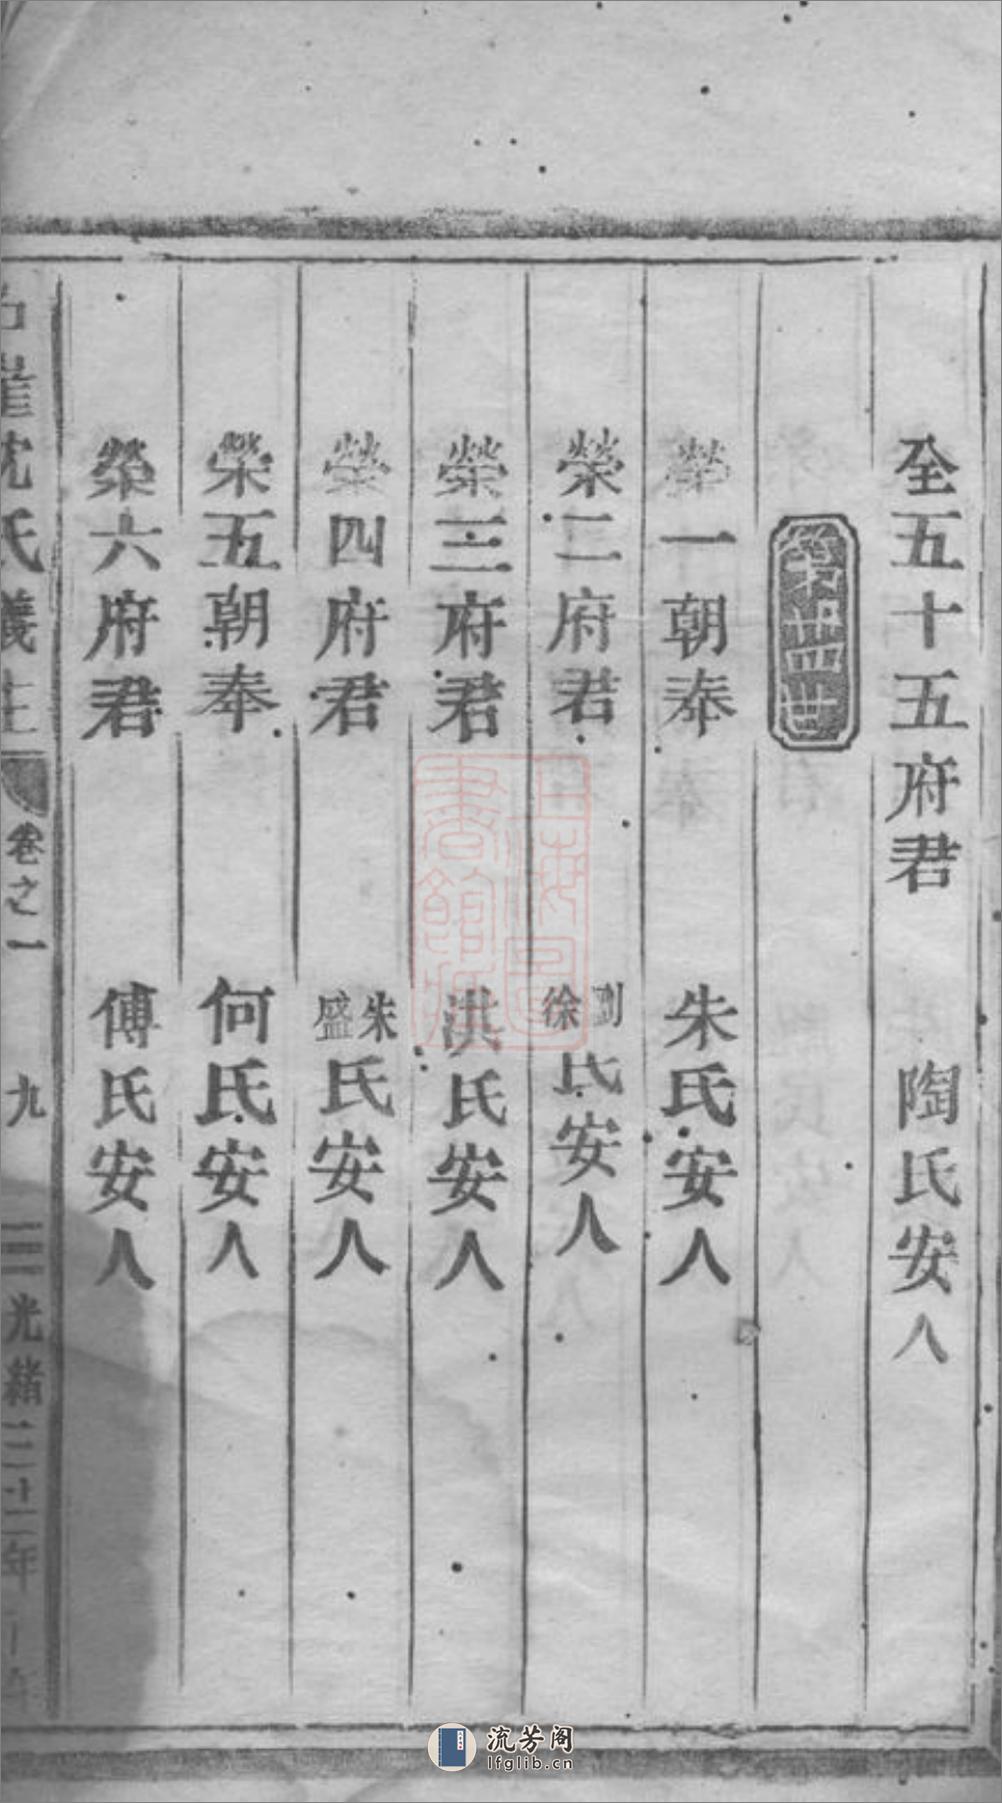 全五十五府君 陶氏安人
第卌世
榮一朝奉 朱氏安人
榮二府君 劉徐氏安人
榮三府君 洪氏安人
榮四府君 朱盛氏安人
榮五朝奉 何氏安人
榮六府君 傅氏安人
沈氏義莊 卷之一 九 光緒三十二年
上海圖書館藏
流芳阁
lfglib.cn